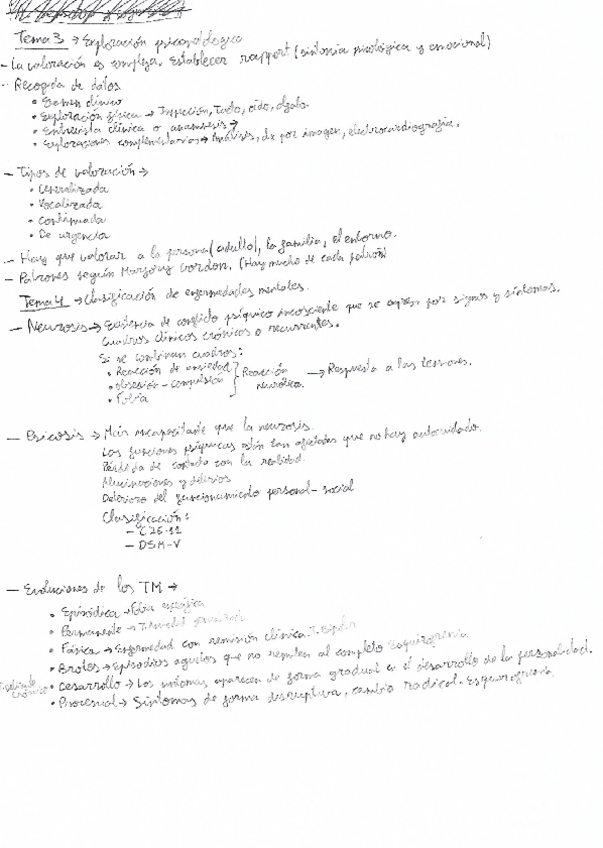 Tema 3 → Exploración psicopatológica
- La valoración es compleja. Establecer rapport (sintonía psicológica y emocional)
- Recogida de datos
• Examen clínico
• Exploración física → Inspección, tacto, oído, olfato.
• Entrevista clínica o anamnesis →
• Exploraciones complementarias → Análisis, dx por imagen, electrocardiografía.
- Tipos de valoración →
• Generalizada
• Focalizada
• Continuada
• De urgencia
- Hay que valorar a la persona (adulto), la familia, el entorno.
- Patrones según Marjory Gordon. (Hay mucho de cada patrón)
Tema 4 → Clasificación de enfermedades mentales.
- Neurosis → Existencia de conflicto psíquico inconsciente que se expresa por signos y síntomas.
Cuadros clínicos crónicos o recurrentes.
Si se combinan cuadros:
• Reacción de ansiedad
• obsesión - compulsión
• Fobia
Reacción neurótica. → Respuesta a las tensiones.
- Psicosis → Más incapacitante que la neurosis.
Las funciones psíquicas están tan afectadas que no hay autocuidado.
Pérdida de contacto con la realidad.
Alucinaciones y delirios
Deterioro del funcionamiento personal - social
Clasificación:
- CIE-11
- DSM-V
- Evoluciones de los TM →
• Episódica → Fobia específica
• Permanente →
• Fásica → Enfermedad con remisión clínica. T. Bipolar
• Brotes → Episodios agudos que no remiten al completo Esquizofrenia
• Desarrollo → Los síntomas aparecen de forma gradual en el desarrollo de la personalidad.
• Procesual → Síntomas de forma disruptiva, cambio radical. Esquizofrenia.